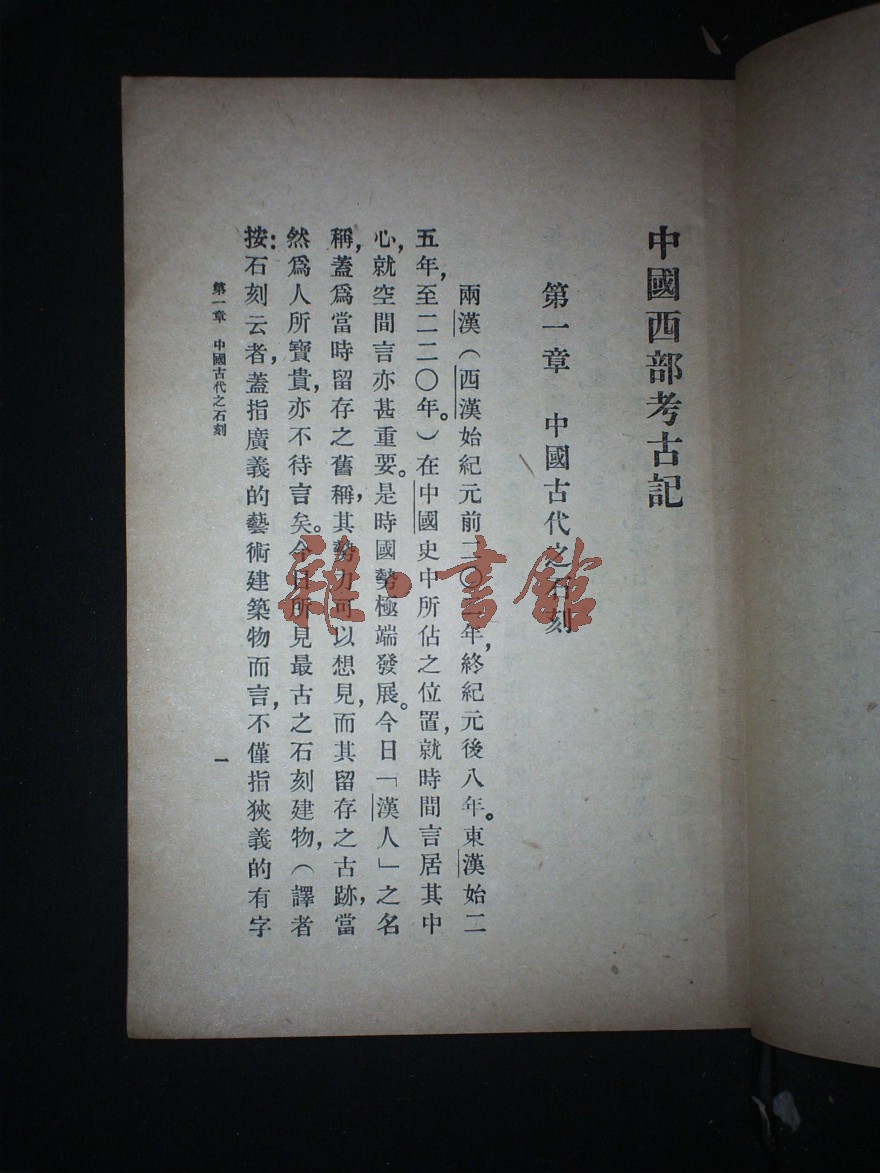 中國西部考古記
第一章 中國古代之石刻
兩漢（西漢始紀元前二〇二年，終紀元後八年。東漢始二
五年，至二二〇年。）在中國史中所佔之位置，就時間言居其中
心，就空間言亦甚重要。是時國勢極端發展。今日「漢人」之名
稱，蓋爲當時留存之舊稱，其勢力可以想見，而其留存之古跡，當
然爲人所寶貴，亦不待言矣。今日所見最古之石刻建物，（譯者
按：石刻云者，蓋指廣義的藝術建築物而言，不僅指狹義的有字
第一章 中國古代之石刻
一
雜·書館